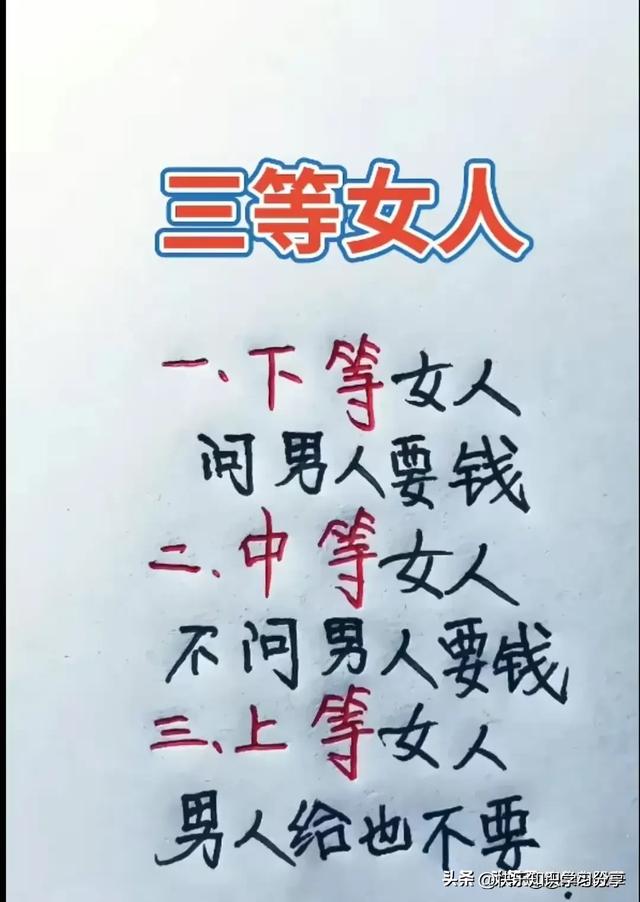 三等女人
一、下等女人
问男人要钱
二、中等女人
不问男人要钱
三、上等女人
男人给也不要
头条 @快乐知识学习分享